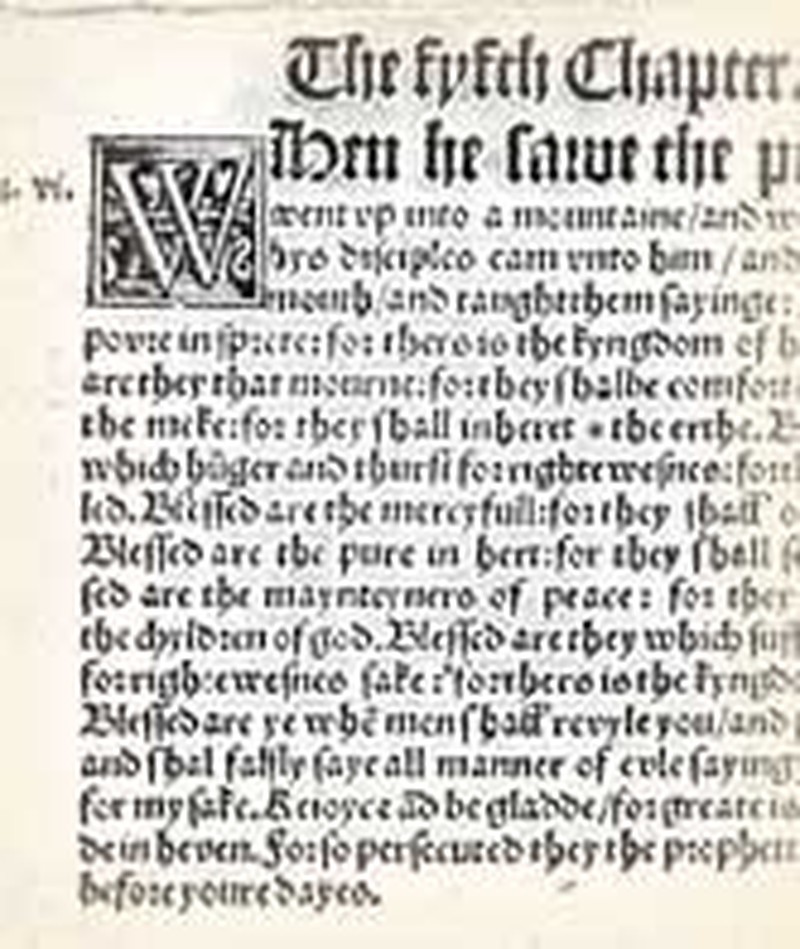 The fyfth Chapter.
When he sawe the
went vp into a mountaine/and
hys disciples cam vnto him/and
mouth/and taught them sayinge:
povre in sprete: for thers is the kyngdom of
are they that mourne: for they shalbe
the meke: for they shall inheret * the erthe.
which hūger and thurst for rightewesnes:
led. Blessed are the mercyfull: for they shall
Blessed are the pure in hert: for they shall
sed are the maynteyners of peace: for they
the chyldren of god. Blessed are they which
for rightewesnes sake: for thers is the
Blessed are ye whē men shall revyle you/and
and shal falsly saye all manner of evle
for my sake. Reioyce ād be gladde/for greate is
de in heven. For so persecuted they the
before youre dayes.